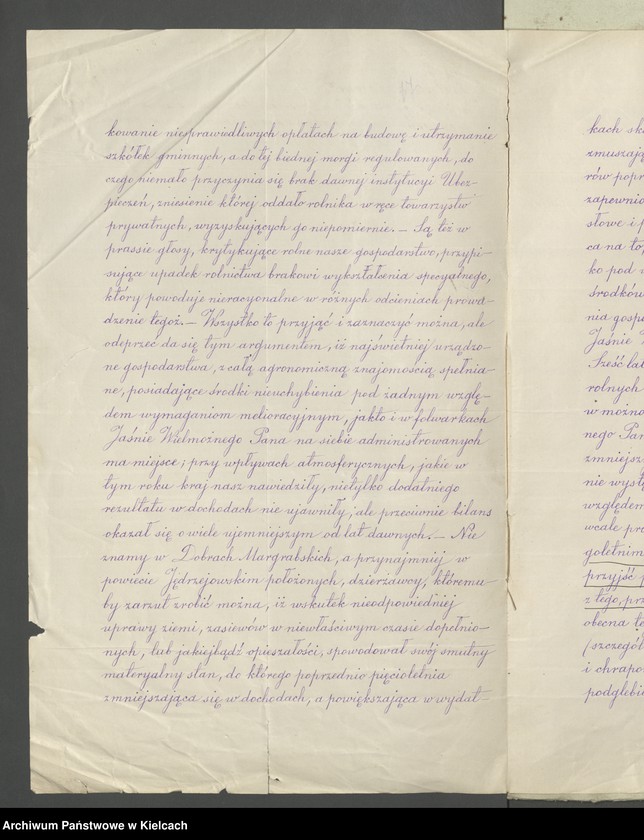 kowanie niesprawiedliwych opłatach na budowę i utrzymanie
szkółek gminnych, a do tej biednej morgi regulowanych, do
czego niemało przyczynia się brak dawnej instytucyi Ubez-
pieczeń, zniesienie której oddało rolnika w ręce towarzystw
prywatnych, wyzyskujących go niepomiernie. – Są też w
prassie głosy, krytykujące rolne nasze gospodarstwo, przypi-
sujące upadek rolnictwa brakowi wykształcenia specyalnego,
który powoduje nieracyonalne w różnych odcieniach prowa-
dzenie tegoż. – Wszystko to przyjąć i zaznaczyć można, ale
odeprzeć da się tym argumentem, iż najświetniej urządzo-
ne gospodarstwa, z całą agronomiczną znajomością spełnia-
ne, posiadające środki nieuchybienia pod żadnym wzglę-
dem wymaganiom melioracyjnym, jak to i w folwarkach
Jaśnie Wielmożnego Pana na siebie administrowanych
ma miejsce; przy wpływach atmosferycznych, jakie w
tym roku kraj nasz nawiedziły, nietylko dodatniego
rezultatu w dochodach nie ujawniły, ale przeciwnie bilans
okazał się o wiele ujemniejszym od lat dawnych. – Nie
znamy w Dobrach Margrabskich, a przynajmniej w
powiecie Jędrzejowskim położonych, dzierżawcy, któremu-
by zarzut zrobić można, iż wskutek nieodpowiedniej
uprawy ziemi, zasiewów w niewłaściwym czasie dopełnio-
nych, lub jakiejbądź opieszałości, spowodował swój smutny
materyalny stan, do którego poprzednio pięcioletnia
zmniejszająca się w dochodach, a powiększająca w wydat-
kach
zmuszają
rów popr
zapewnio
słowe i p
ca na to,
ko pod
środków
nia gospo
Jaśnie W
Sześć lat
rolnych
w możno
nego Pan
zmniejsz
nie wystę
względem
wcale pra
goletnim
przyjść p
z tego, prz
obecna te
(szczegól
i chrapo
podglebi
Archiwum Państwowe w Kielcach